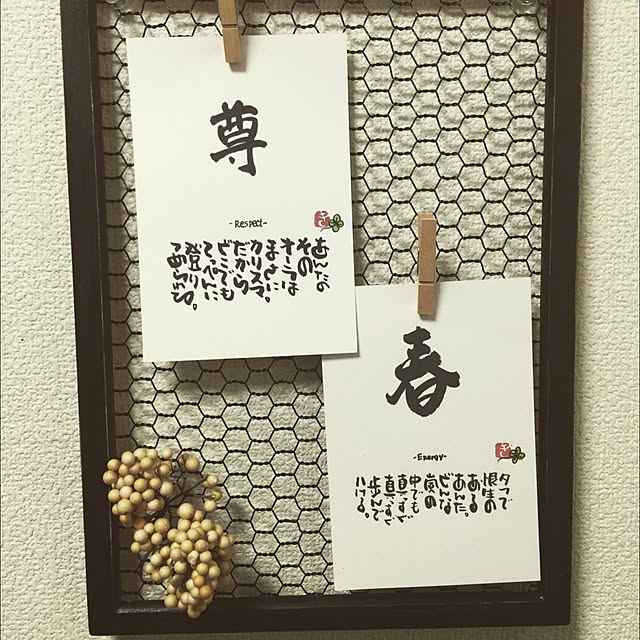 尊
-Respect-
あんたの
その
オーラは
まさに
カリスマ。
だから
どこまでも
てっぺんに
登り
つめちゃいな。
春
-Energy-
タフで
根性の
ある
あんた。
どんな
嵐の
中でも
真っすぐ
真っすぐ
歩んで
いける。